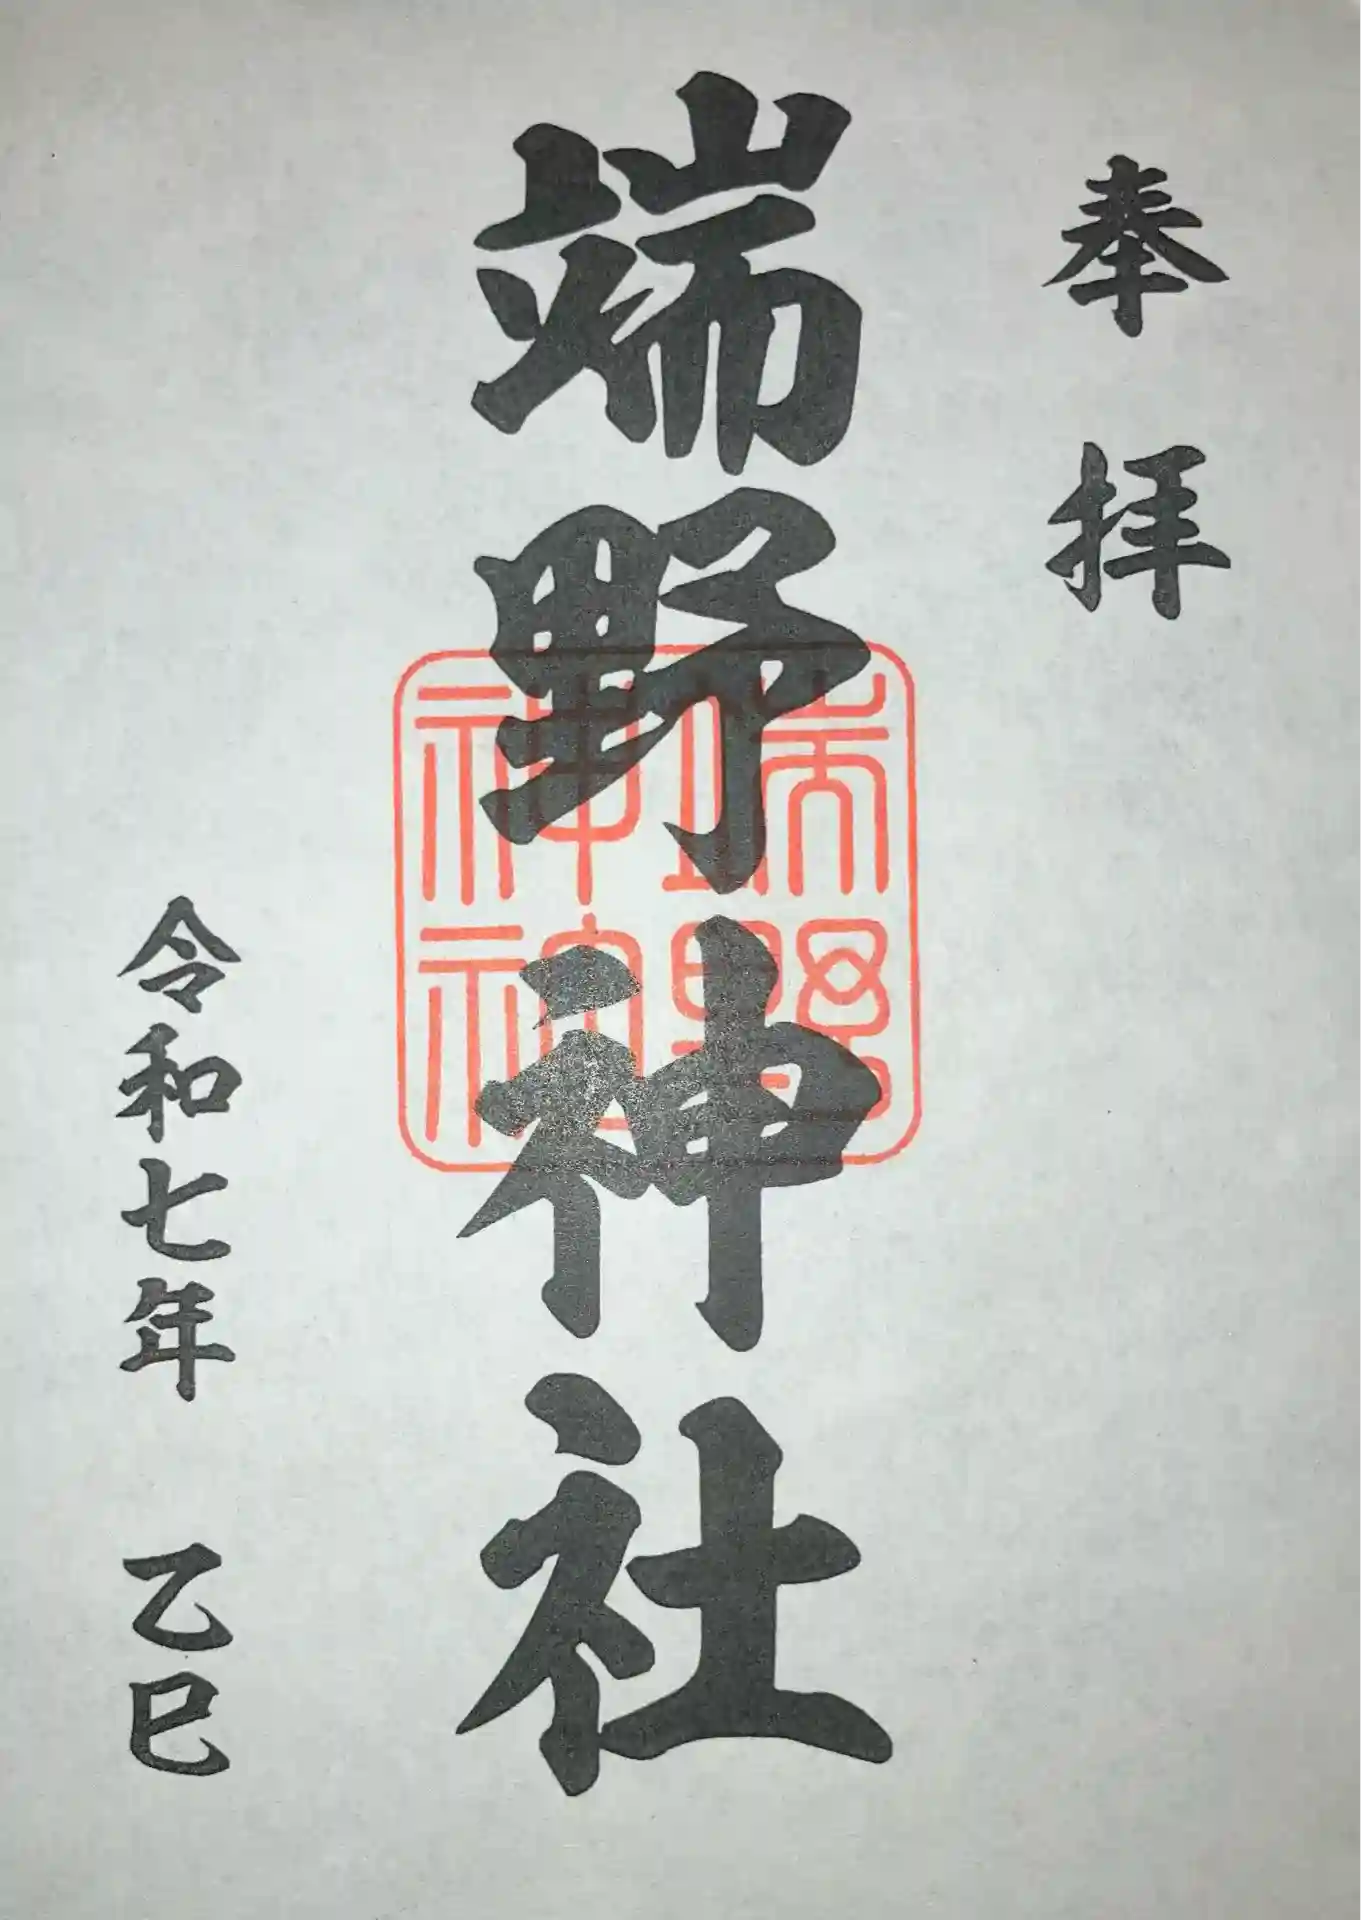 奉拝
端野神社
端野神社
令和七年 乙巳